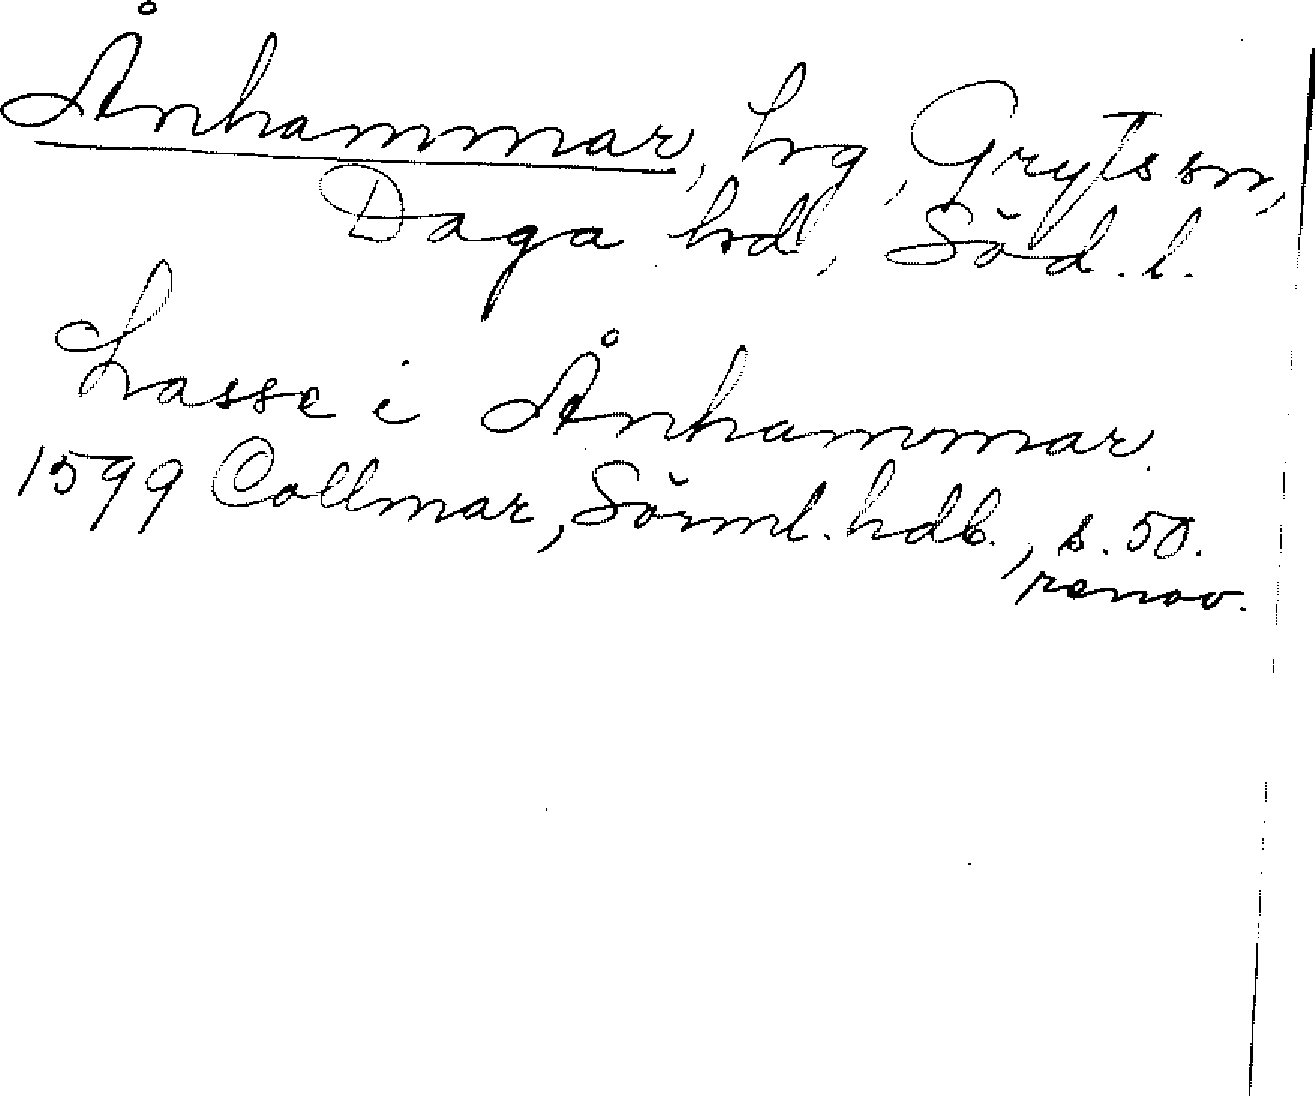 Ånhammar, hrg, Gryts sn,
Daga hd, Söd. l.
Lasse i Ånhammar
1599 Collmar, Sörml. hdb., s. 50.
renov.